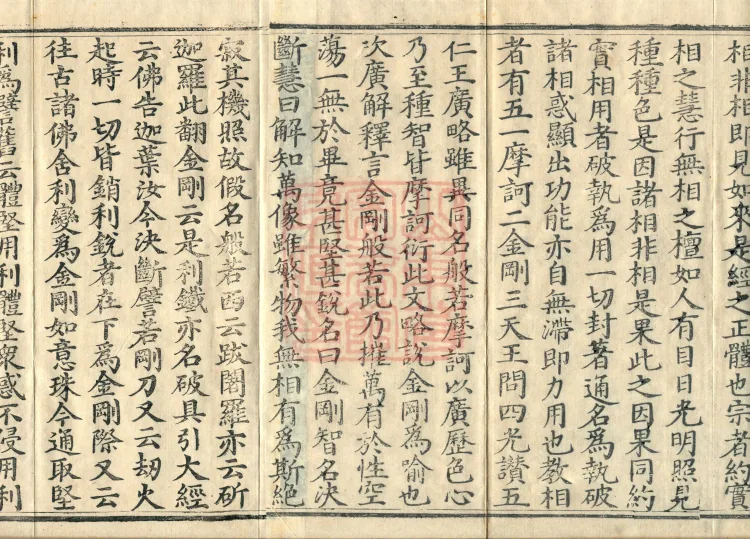 相非相即見如來是經之正體也宗者約實
相之慧行無相之檀如人有目日光明照見
種種色是因諸相非相是果此之因果同約
實相用者破執為用一切封著通名為執破
諸相惑顯出功能亦自無滯即力用也教相
者有五一摩訶二金剛三天王問四光讚五
仁王廣略雖異同名般若摩訶以廣歷色心
乃至種智皆摩訶衍此文略說金剛為喻也
次廣解釋言金剛般若此乃摧萬有於性空
蕩一無於畢竟甚堅甚銳名曰金剛智名決
斷慧曰解知萬像雖繁物我無相有為斯絕
寂其機照故假名般若西云跋闍羅亦云斫
迦羅此翻金剛云是利鐵亦名破具引大經
云佛告迦葉汝今決斷譬若剛刀又云劫火
起時一切皆銷利銳者在下為金剛際又云
往古諸佛舍利變為金剛如意珠今通取堅
利為譬舊云體堅用利體堅眾惑不侵用利